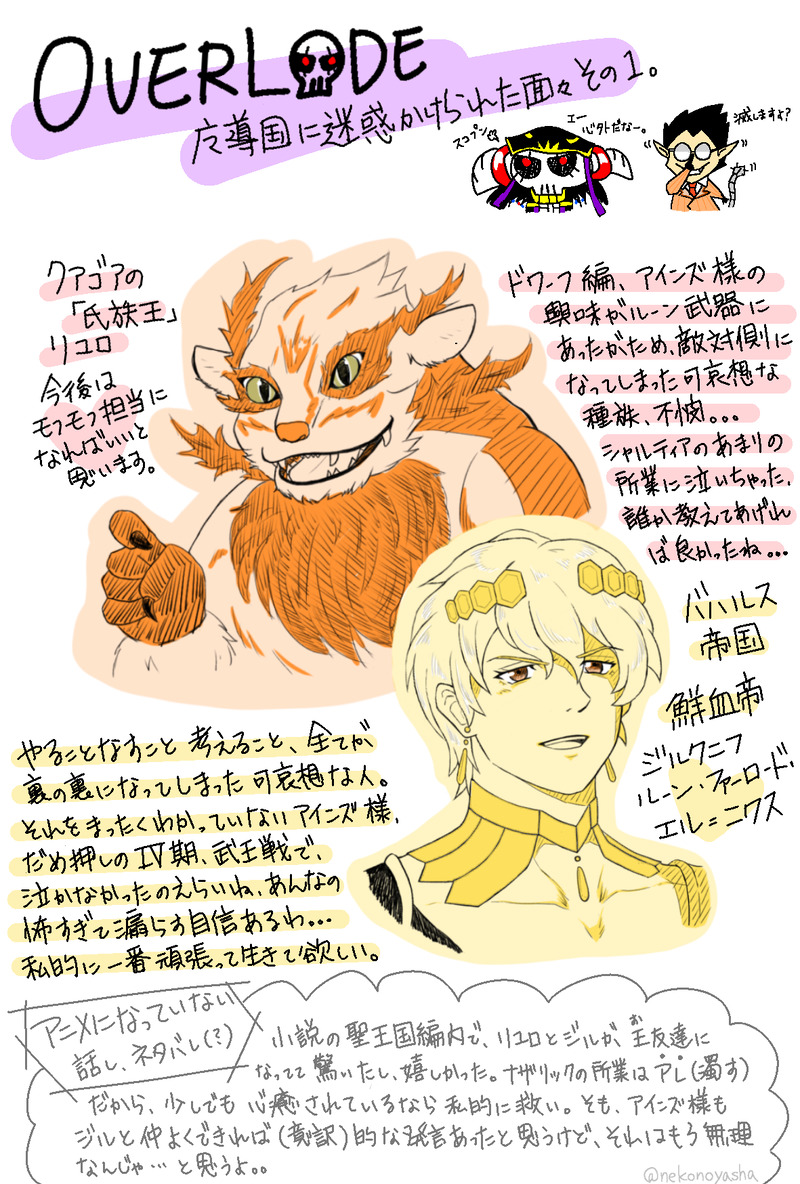 OVERLODE
广導国に迷惑かけられた面々その1。
スコブン
エー
心外だなー。
滅しますよ?
クアゴアの
「氏族王」
リユロ
今後は
モフモフ担当に
なればいいと
思います。
ドワーフ編、アインズ様の
興味がルーン武器に
あったがため、敵対側に
なってしまった可哀想な
種族、不憫。。。
シャルティアのあまりの
所業に泣いちゃった、
誰か教えてあげれ
ば良かったね...
バハルス
帝国
鮮血帝
ジルクニフ
ルーン・ファーロード・
エル=ニクス
やることなすこと考えること、全てが
裏の裏になってしまった可哀想な人。
それをまったくわかっていないアインズ様、
だめ押しのⅣ期、武王戦で、
泣かなかったのえらいね、あんなの
怖すぎて漏らす自信あるわ...
私的に一番頑張って生きて欲しい。
アニメになっていない
話し、ネタバレ(?)
小説の聖王国編内で、リユロとジルが、お王友達に
なってて驚いたし、嬉しかった。ナザリックの所業はアレ(濁す)
だから、少しでも心癒されているなら私的に救い。そも、アインズ様も
ジルと仲よくできれば(意訳)的な発言あったと思うけど、それはもう無理
なんじゃ…と思うよ。。
@nekonoyasha